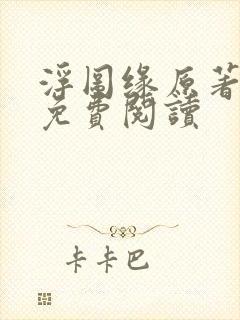 浮圖缘原著
免費閱讀
卡卡巴